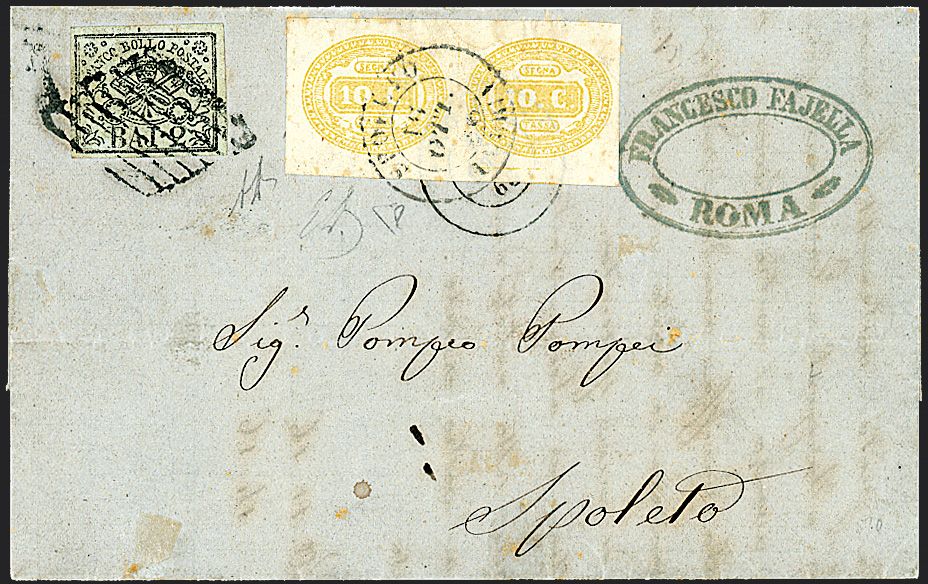 FRANCO BOLLO POSTALE
BAJ 2
SEGNA
10. C.
TASSA
SEGNA
10. C.
TASSA
FRANCESCO FAJELLA
ROMA
Sig.r Pompeo Pompei
Spoleto